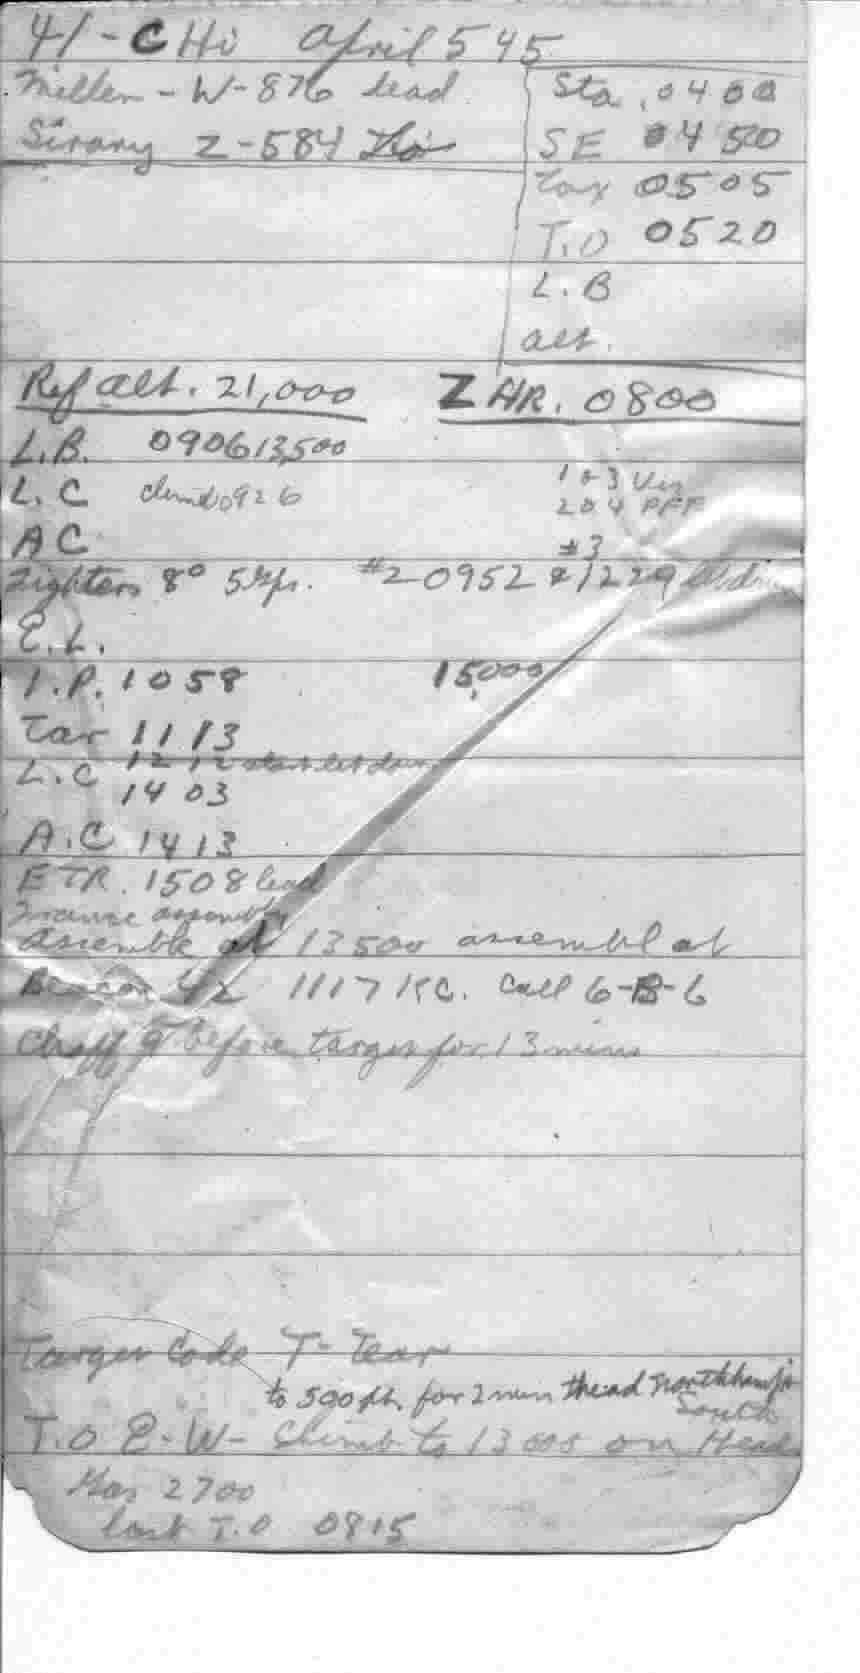 41-C Hi April 5 45
Miller - W-876 lead
Z-584
Sta. 0400
SE 0450
Tax 0505
T.O 0520
L.B
alt.
Ref alt. 21,000 Z HR. 0800
L.B. 0906 13,500
L.C climb 0926
1 & 3 Vis
2 & 4 PFF
AC #3
Fighters 8° 5 Gps. #2 0952 & 1229
E.L.
I.P. 1058 15,000
Tar 1113
L.C 1212 start let down
1403
A.C 1413
ETR. 1508 lead
assembly
Assemble at 13500 assembl at
Beacon 42 1117 KC. Call 6-B-6
Chaff 9 before target for 13 mins
Target Code T- Tear
to 500 ft. for 2 min
South
T.O E-W- Climb to 13000 on Head
Gas 2700
last T.O 0815